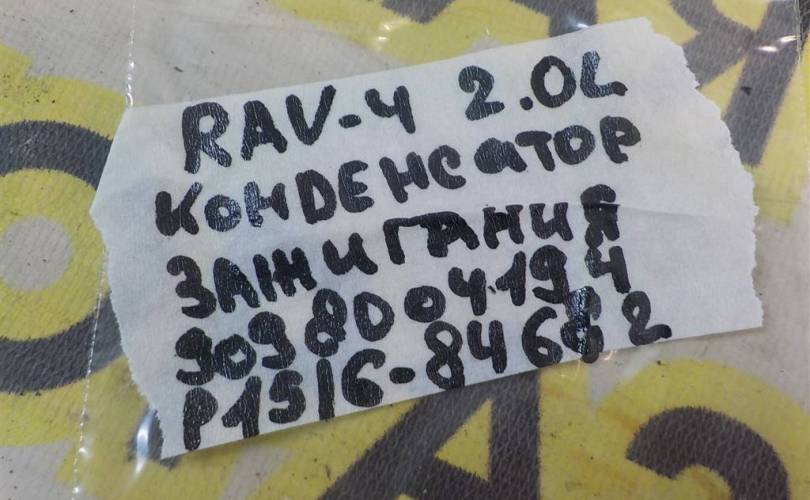 RAV-4 2.0L
КОНDЕНСАТОР
ЗАЖИГАНИЯ
9098004194
P1516-84682